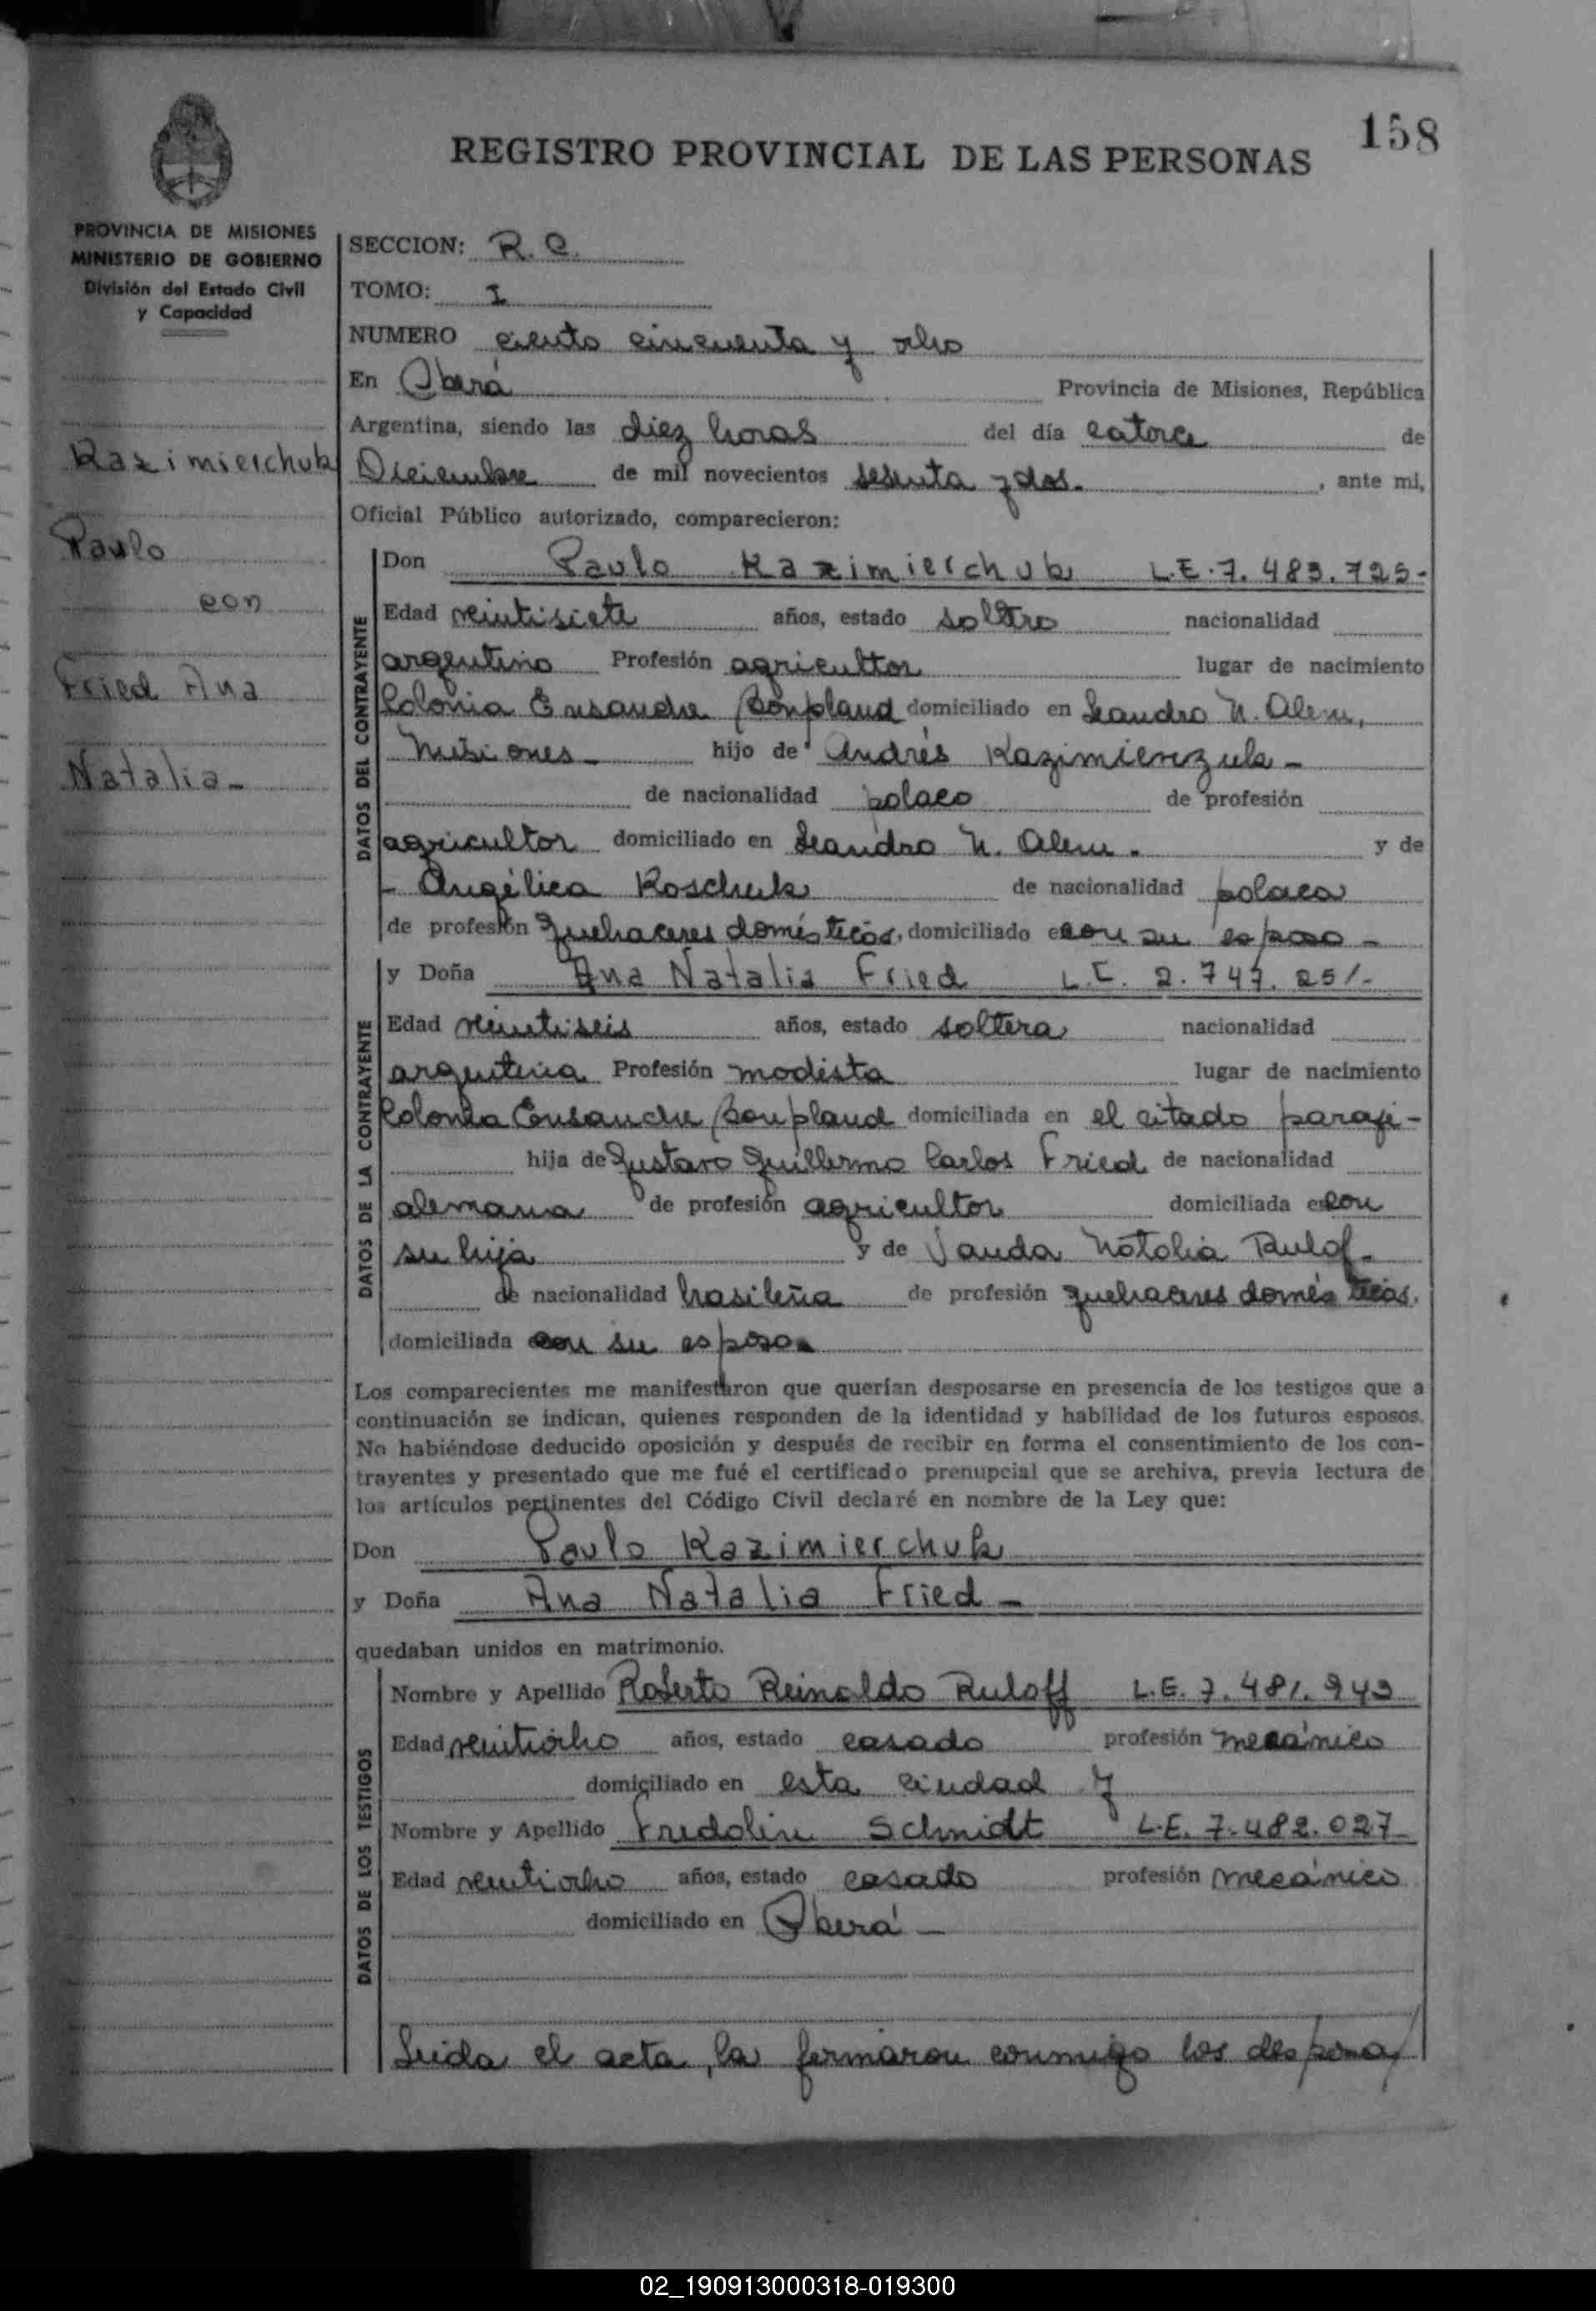 158
REGISTRO PROVINCIAL DE LAS PERSONAS
PROVINCIA DE MISIONES
MINISTERIO DE GOBIERNO
División del Estado Civil
y Capacidad
Kazimierchuk
Paulo
con
Fried Ana
Natalia-
SECCION: R. C.
TOMO: I
NUMERO ciento cincuenta y ocho
En Oberá Provincia de Misiones, República
Argentina, siendo las diez horas del día catorce de
Diciembre de mil novecientos sesenta y dos. , ante mi,
Oficial Público autorizado, comparecieron:
DATOS DEL CONTRAYENTE
Don Paulo Kazimierchuk L.E. 7. 483. 725-
Edad veintisiete años, estado soltero nacionalidad
argentino Profesión agricultor lugar de nacimiento
Colonia Ensanche Bonpland domiciliado en Leandro N. Alem,
Misiones- hijo de Andrés Kazimierczuk-
de nacionalidad polaco de profesión
agricultor domiciliado en Leandro N. Alem. y de
- Angélica Koschuk de nacionalidad polaca
de profesión quehaceres domésticos, domiciliado con su esposo-
DATOS DE LA CONTRAYENTE
y Doña Ana Natalia Fried L.C. 2. 747. 251-
Edad veintiseis años, estado soltera nacionalidad
argentina Profesión modista lugar de nacimiento
Colonia Ensanche Bonpland domiciliada en el citado paraje-
hija de Gustavo Guillermo Carlos Fried de nacionalidad
alemana de profesión agricultor domiciliada con
su hija y de Vanda Natalia Rulof-
de nacionalidad brasileña de profesión quehaceres domésticos,
domiciliada con su esposo.
Los comparecientes me manifestaron que querían desposarse en presencia de los testigos que a
continuación se indican, quienes responden de la identidad y habilidad de los futuros esposos.
No habiéndose deducido oposición y después de recibir en forma el consentimiento de los con-
trayentes y presentado que me fué el certificado prenupcial que se archiva, previa lectura de
los artículos pertinentes del Código Civil declaré en nombre de la Ley que:
Don Paulo Kazimierchuk
y Doña Ana Natalia Fried-
quedaban unidos en matrimonio.
DATOS DE LOS TESTIGOS
Nombre y Apellido Roberto Reinaldo Ruloff L.E. 7. 481. 943
Edad veintiocho años, estado casado profesión mecánico
domiciliado en esta ciudad y
Nombre y Apellido Fridolin Schmidt L.E. 7. 482. 027
Edad veintiocho años, estado casado profesión mecánico
domiciliado en Oberá-
Leida el acta, la firmaron conmigo los desposa/
02_190913000318-019300